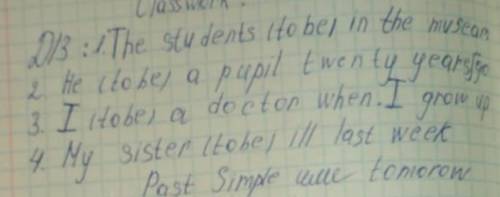 Classwork.
Д/З: 1. The students (to be) in the museam
2. He (to be) a pupil twenty years ago
3. I (to be) a doctor when I grow up
4. My sister (to be) ill last week
Past Simple или tomorow